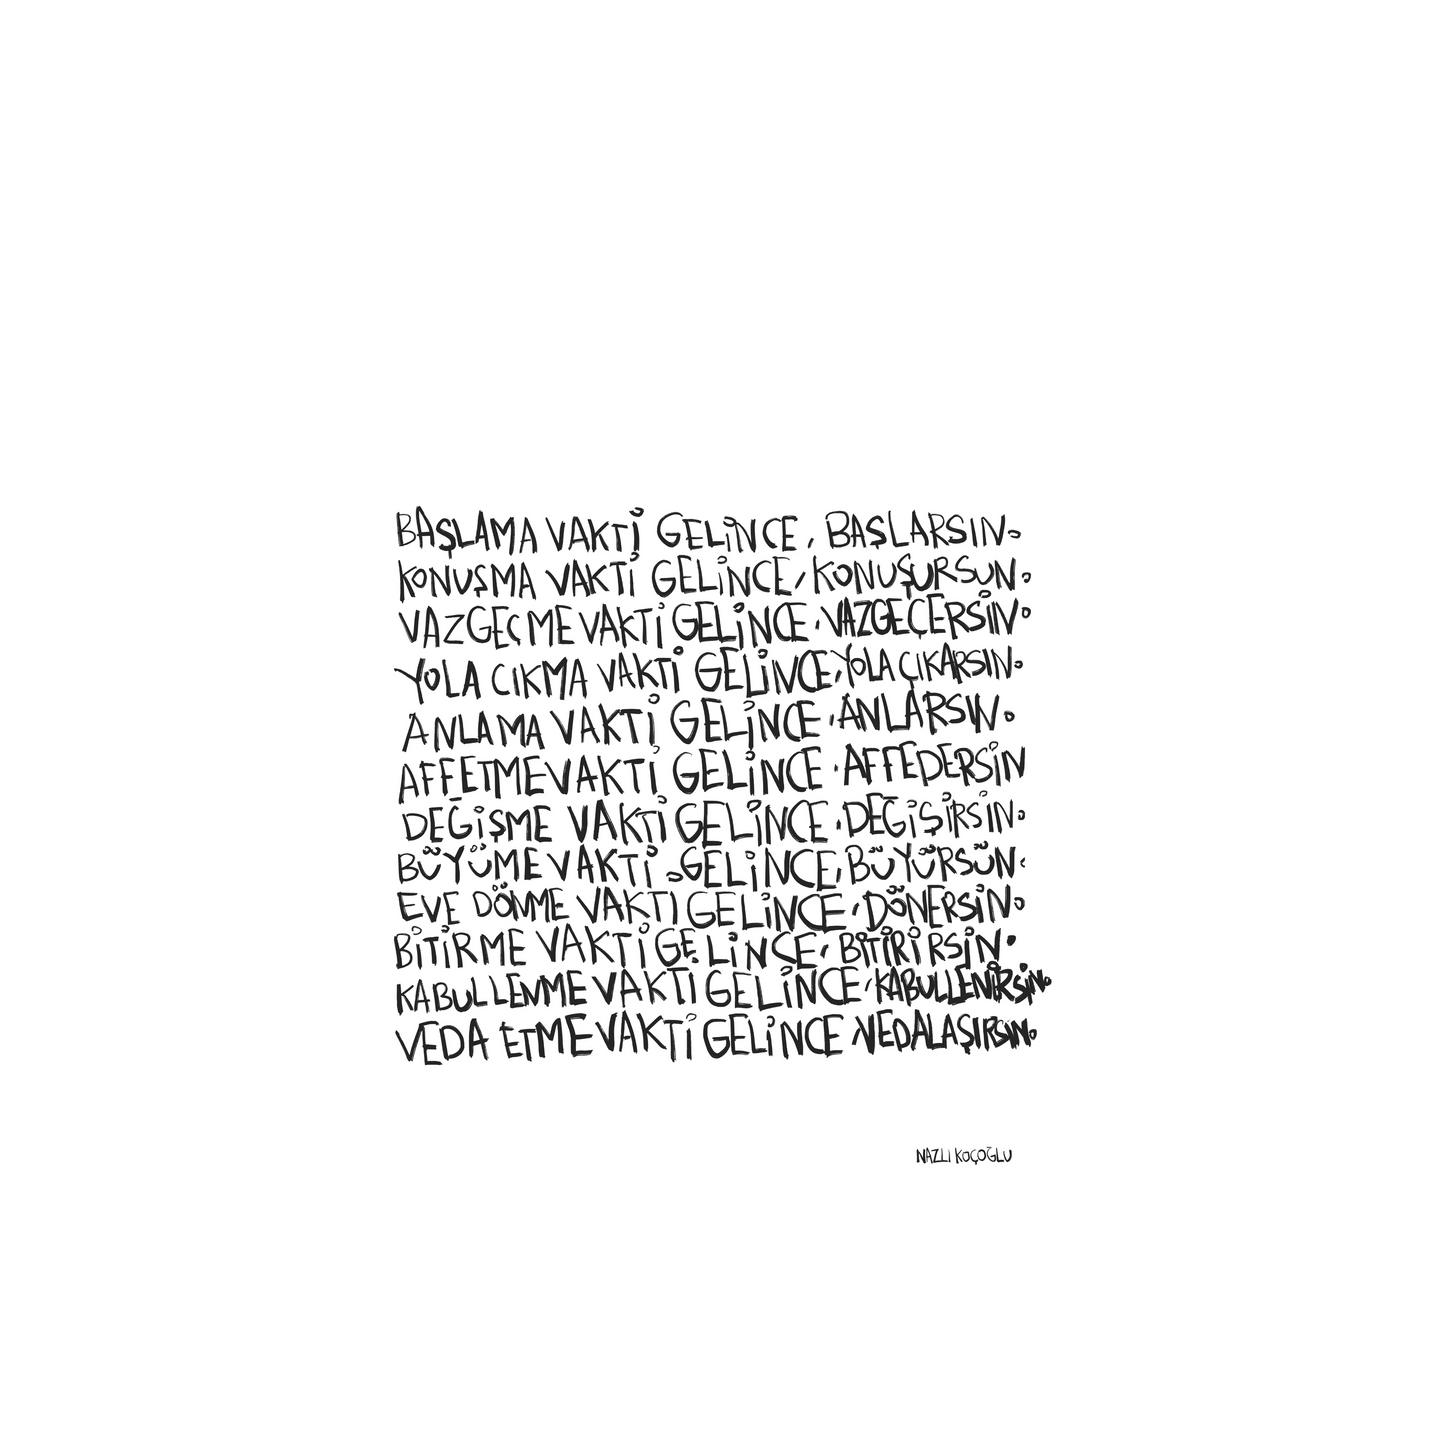 BAŞLAMA VAKTİ GELİNCE, BAŞLARSIN.
KONUŞMA VAKTİ GELİNCE, KONUŞURSUN.
VAZGEÇME VAKTİ GELİNCE, VAZGEÇERSİN.
YOLA CIKMA VAKTİ GELİNCE, YOLA ÇIKARSIN.
ANLAMA VAKTİ GELİNCE, ANLARSIN.
AFFETME VAKTİ GELİNCE, AFFEDERSİN
DEĞİŞME VAKTİ GELİNCE, DEĞİŞİRSİN.
BÜYÜME VAKTİ GELİNCE, BÜYÜRSÜN.
EVE DÖNME VAKTI GELİNCE, DÖNERSİN.
BİTİRME VAKTİ GELİNCE, BİTİRİRSİN.
KABULLENME VAKTİ GELİNCE, KABULLENİRSİN.
VEDA ETME VAKTİ GELİNCE, VEDALAŞIRSIN.
NAZLI KOÇOĞLU